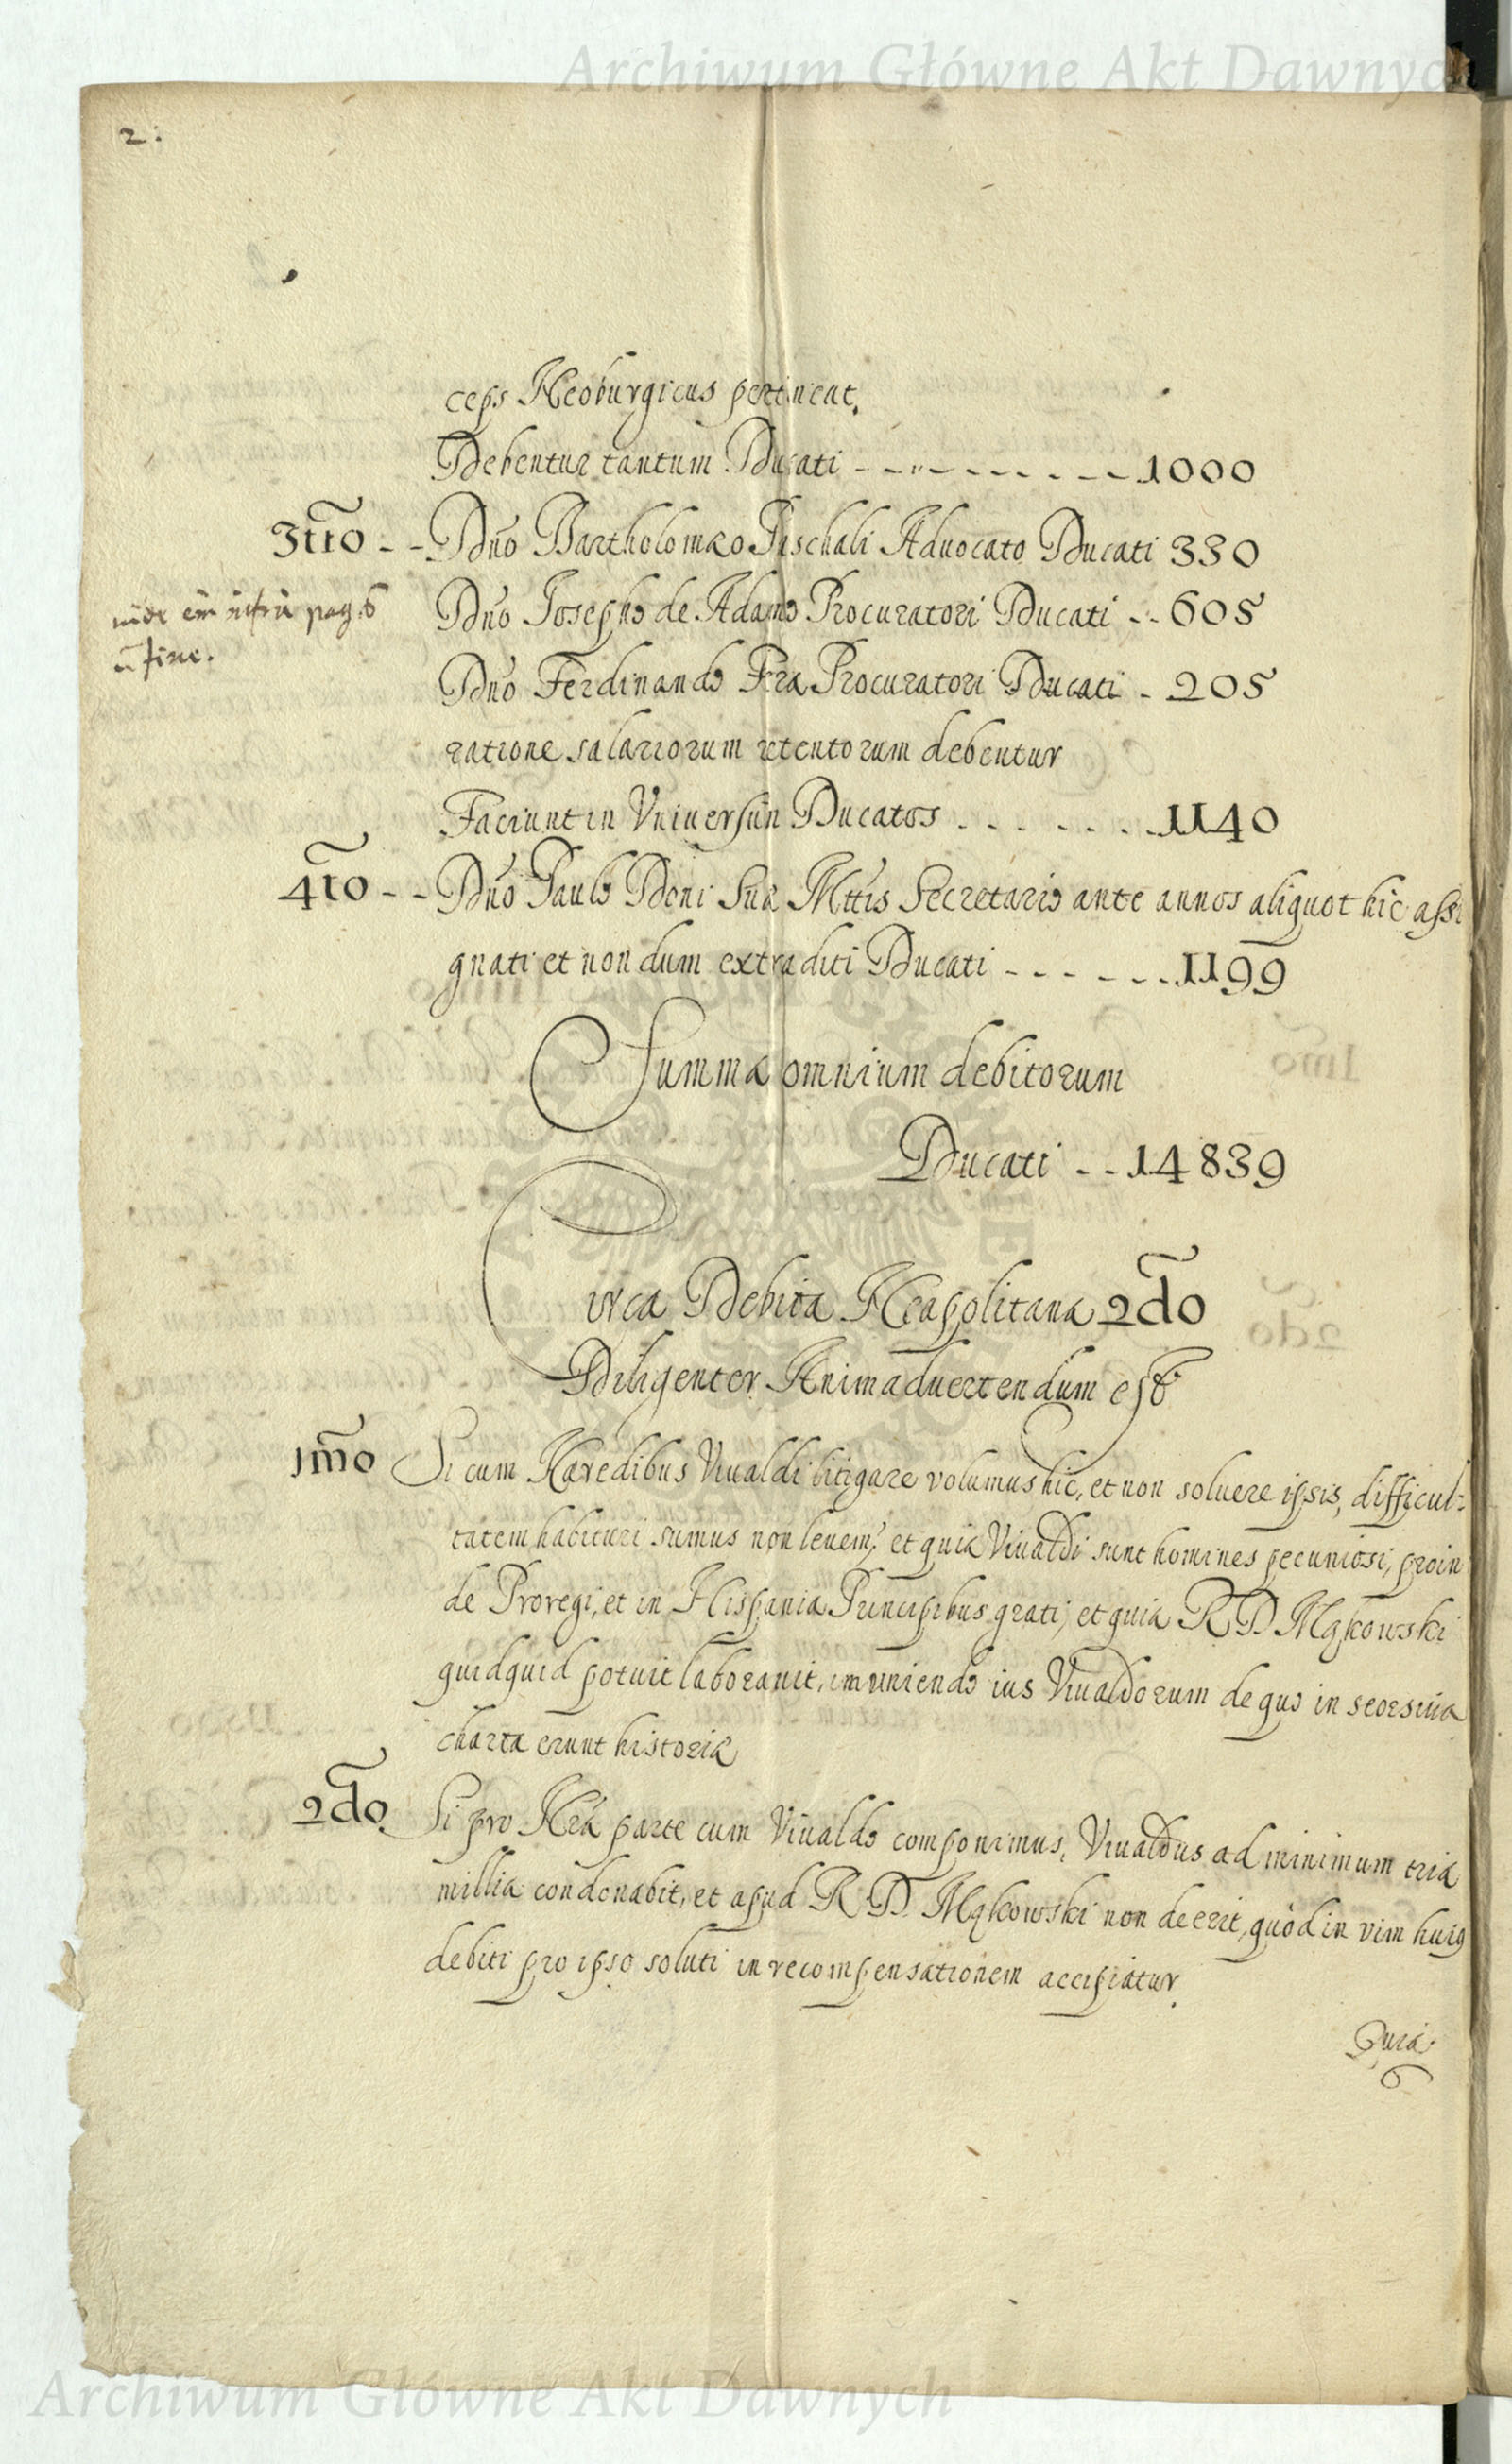 Archiwum Główne Akt Dawnych
2:
ceps Neoburgicus pertineat.
Debentur tantum Ducati - - - - - - - - - 1000
3tio - - Dno Bartholomæo Paschali Aduocato Ducati 330
Dno Josepho de Adamo Procuratori Ducati - - 605
uide em infra pag. 6
in fine.
Dno Ferdinando Fra Procuratori Ducati - 205
ratione salariorum retentorum debentur
Faciunt in Vniuersum Ducatos . . . . . . . 1140
4to - - Dno Paulo Doni Suæ Mttis Secretario ante annos aliquot hic assi
gnati et non dum extraditi Ducati - - - - - - 1199
Summa omnium debitorum
Ducati - - 14839
Circa Debita Neapolitana 2do
Diligenter Animaduertendum est
1mo Si cum Hæredibus Viualdi litigare volumus hic, et non soluere ipsis, difficul:
tatem habituri sumus non leuem; et quia Viualdi sunt homines pecuniosi, proin
de Proregi, et in Hispania Principibus grati; et quia R D Mąkowski
quidquid potuit laborauit, imuniendo ius Viualdorum de quo in seorsiua
charta erunt historiæ
2do Si pro Nra parte cum Viualdo componimus, Viualdus ad minimum tria
millia condonabit, et apud R D. Mąkowski non deerit, quòd in vim huiq
debiti pro ipso soluti in recompensationem accipiatur.
Quia
Archiwum Główne Akt Dawnych